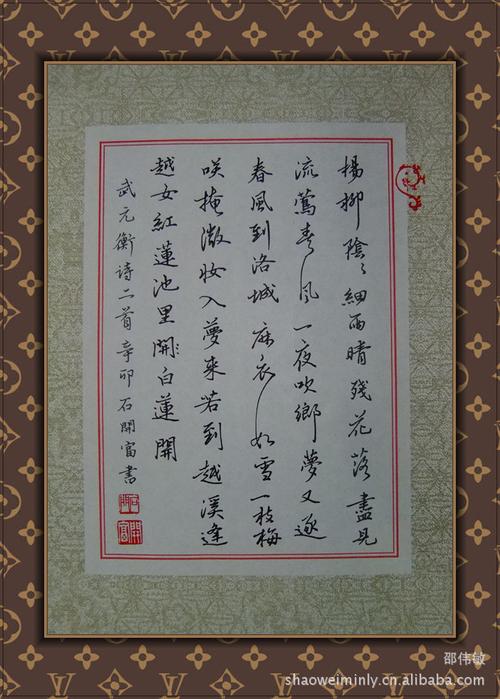 楊柳陰〻細雨晴殘花落盡見
流鶯春風一夜吹鄉夢又逐
春風到洛城麻衣如雪一枝梅
咲掩微妝入夢來若到越溪逢
越女紅蓮池里開白蓮開
武元衡诗二首辛卯石開富書
邵伟敏
shaoweiminly.cn.alibaba.com